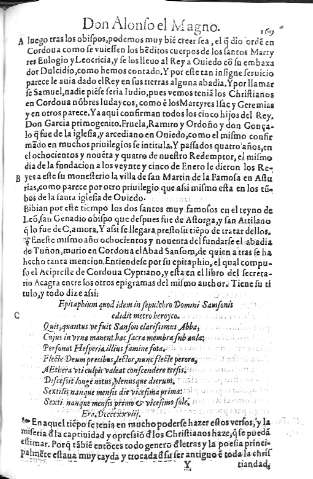 Don Alonso el Magno. 169
A luego tras los obispos, podemos muy biē creer sea, el q̃ dio ordē en
Cordoua como se vuiessen los bēditos cuerpos de los santos Marty
res Eulogio y Leocricia, y se los lleuo al Rey a Ouiedo cō su embaxa
dor Dulcidio, como hemos contado, Y por este tan insigne seruicio
parece le auia dado el Rey en sus tierras alguna abadia, Y por llamar
se Samuel, nadie piēse seria Iudio, pues vemos teniā los Christianos
en Cordoua nōbres Iudaycos, como ē los Martyres Isac y Geremias
y en otros parece. Ya aqui confirmani todos los cinco hijos del Rey.
Don Garcia primogenito, Fruela, Ramiro y Ordoño y don Gonça-
lo q̃ fue de la iglesia, y arcediano en Ouiedo, como el mismo confir
mādo en muchos priuilegios se intitula. Y passados quatro años, en
el ochocientos y nouēta y quatro de nuestro Redemptor, el mismo
dia de la fundacion a los veynte y cinco de Enero le dieron los Re-
B yes a este su monesterio la villa de san Martin de la Famosa en Astu
rias, como parece por otro priuilegio que assi mismo esta en los tū-
bos de la santa iglesia de Ouiedo.
Bibian por este tiempo los dos santos muy famosos en el reyno de
Leō, san Genadio obispo que despues fue de Astorga, y san Attilano
q̃ lo fue de Çamora, Y assi se llegara presto su tiēpo de tratar dellos.
Y En este mismo año ochocientos y nouenta del fundarse el abadia
de Tuñon, murio en Cordoua el Abad Sansom, de quien atras se ha
hecho tanta mencion. Entiendese por su epitaphio, el qual compu-
so el Acipreste de Cordoua Cypriano, y esta en el libro del secreta-
rio Açagra entre los otros epigramas del mismo author. Tiene su ti
tulo, y todo dize assi:
Epitaphium quod idem in sepulchro Domini Samsonis
C edidit metro heroyco.
Quis, quantus ve fuit Sanson clarissimus Abba,
Cujus in vrna manent hac sacra membra sub aula:
Personat Hesperia, illius famine fota,
Flecte Deum precibus, lector, nunc flecte perora,
AEthera vti culpis valeat conscendere tersis.
Discessit longe notus, plenusque dierum,
Sextilis namque mensis die vicesima prima:
Sexti namque mensis primo & vicesimo sole.
Era. Dcccc xxviij.
En aquel tiēpo se tenia en mucho poderse hazer estos versos, y la
miseria d̄ la captiuidad y opressiō d̄ los Christianos haze, q̃ se pueda
estimar. Porq̄ tābiē entōces todo genero d̄ letras y la poesia princi-
palmēte estaua muy cayda y trocada d̄ su ser antiguo ē toda la chris
Y tiandad,